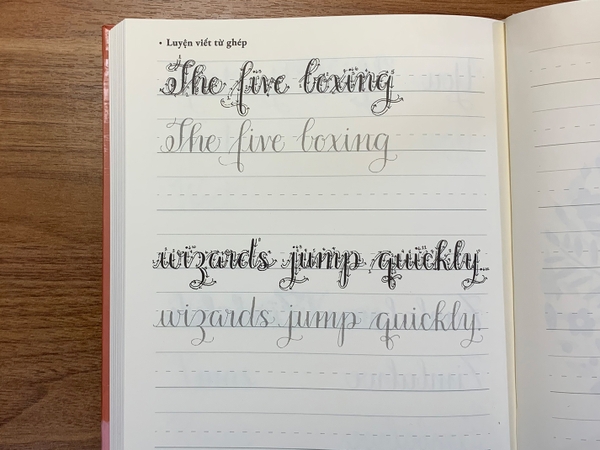 • Luyện viết từ ghép
The five boxing
The five boxing
wizards jump quickly.
wizards jump quickly.